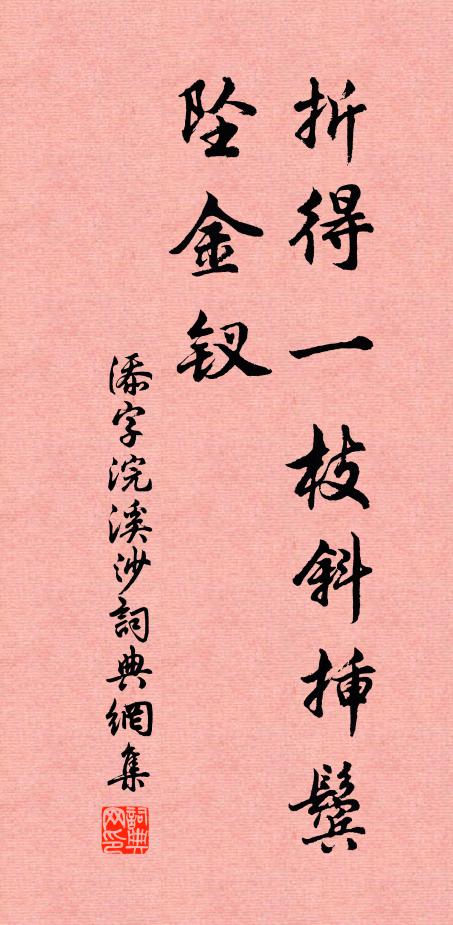 折得一枝斜插鬓
坠金钗
添字浣溪沙詞典網集
詞典
网印